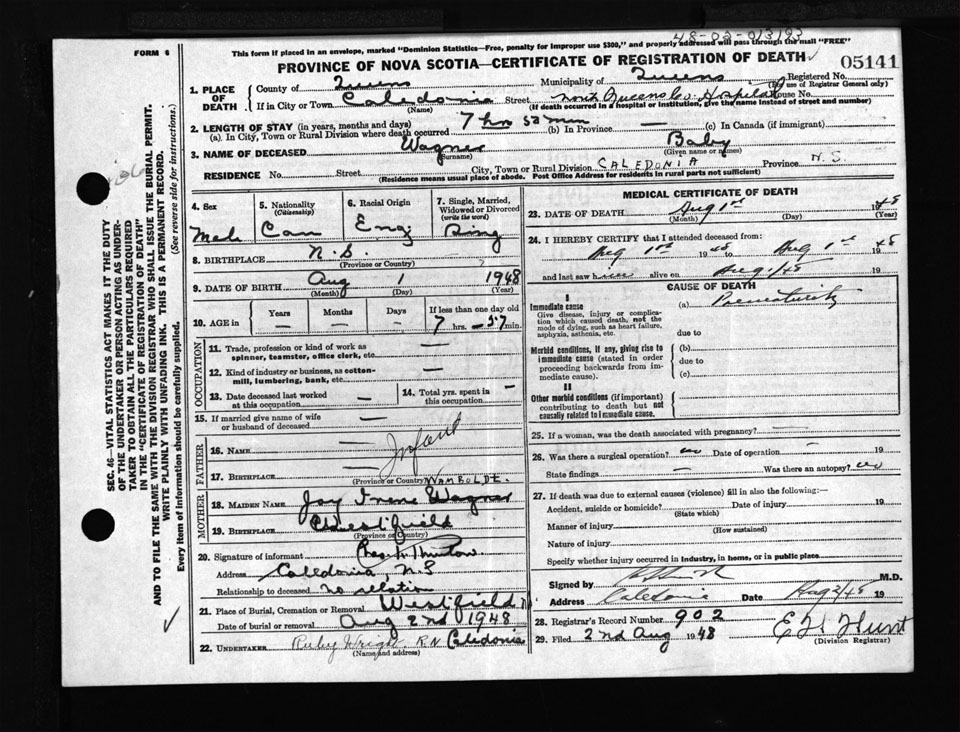 48-02-013193
FORM 6
This form if placed in an envelope, marked "Dominion Statistics—Free, penalty for improper use $300," and properly addressed will pass through the mail "FREE"
PROVINCE OF NOVA SCOTIA—CERTIFICATE OF REGISTRATION OF DEATH
05141
SEC. 46—VITAL STATISTICS ACT MAKES IT THE DUTY
OF THE UNDERTAKER OR PERSON ACTING AS UNDER-
TAKER TO OBTAIN ALL THE PARTICULARS REQUIRED
IN THE "CERTIFICATE OF REGISTRATION OF DEATH"
AND TO FILE THE SAME WITH THE DIVISION REGISTRAR WHO SHALL ISSUE THE BURIAL PERMIT.
WRITE PLAINLY WITH UNFADING INK. THIS IS A PERMANENT RECORD.
Every item of information should be carefully supplied. (See reverse side for instructions.)
1. PLACE OF DEATH
County of Queens Municipality of Queens Registered No.
(By use of Registrar General only)
If in City or Town Caledonia Street North Queens Co. Hospital House No.
(Name) (If death occurred in a hospital or institution, give the name instead of street and number)
2. LENGTH OF STAY (in years, months and days)
(a). In City, Town or Rural Division where death occurred 7 hrs 52 min (b) In Province — (c) In Canada (if immigrant)
3. NAME OF DECEASED Wagner Baby
(Surname) (Given name or names)
RESIDENCE No. Street City, Town or Rural Division CALEDONIA Province N.S.
(Residence means usual place of abode. Post Office Address for residents in rural parts not sufficient)
4. Sex Male
5. Nationality (Citizenship) Can
6. Racial Origin Eng
7. Single, Married, Widowed or Divorced (write the word) Sing
8. BIRTHPLACE N.S.
(Province or Country)
9. DATE OF BIRTH Aug 1 1948
(Month) (Day) (Year)
10. AGE in Years — Months — Days — If less than one day old
7 hrs. 57 min.
OCCUPATION
11. Trade, profession or kind of work as
spinner, teamster, office clerk, etc. —
12. Kind of industry or business, as cotton-
mill, lumbering, bank, etc. —
13. Date deceased last worked
at this occupation —
14. Total yrs. spent in
this occupation —
15. If married give name of wife
or husband of deceased —
FATHER
16. Name Infant
17. Birthplace
(Province or Country)
MOTHER
WAMBOLDT.
18. Maiden Name Joy Irene Wagner
19. Birthplace Westfield
(Province or Country)
20. Signature of informant
Address Caledonia, N.S
Relationship to deceased no relation
21. Place of Burial, Cremation or Removal Westfield
Date of burial or removal Aug 2nd 1948
22. UNDERTAKER Ruby Wright R.N Caledonia
(Name and address)
MEDICAL CERTIFICATE OF DEATH
23. DATE OF DEATH Aug 1st 1948
(Month) (Day) (Year)
24. I HEREBY CERTIFY that I attended deceased from:
Aug 1st 1948 to Aug 1st 1948
and last saw him alive on Aug 1/48 19
CAUSE OF DEATH
I
Immediate cause
Give disease, injury or complica-
tion which caused death, not the
mode of dying, such as heart failure,
asphyxia, asthenia, etc.
(a) Prematurity
due to
Morbid conditions, if any, giving rise to
immediate cause (stated in order
proceeding backwards from im-
mediate cause).
(b)
due to
(c)
II
Other morbid conditions (if important)
contributing to death but not
causally related to immediate cause.
25. If a woman, was the death associated with pregnancy? —
26. Was there a surgical operation? no Date of operation —
State findings — Was there an autopsy? no
27. If death was due to external causes (violence) fill in also the following:
Accident, suicide or homicide? Date of injury 19
(State which)
Manner of injury
(How sustained)
Nature of injury
Specify whether injury occurred in industry, in home, or in public place
Signed by M.D.
Address Caledonia Date Aug 2/48 19
28. Registrar's Record Number 902
29. Filed 2nd Aug 1948 E H Hunt
(Division Registrar)